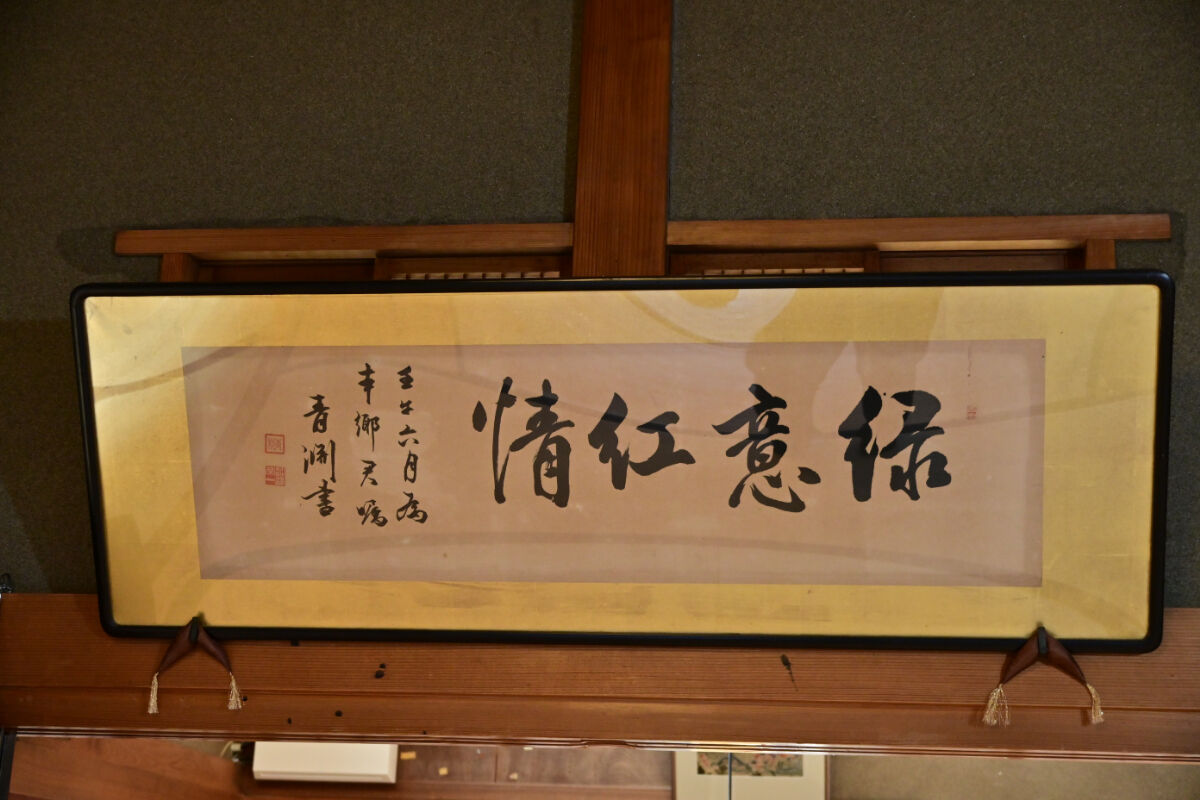 緑意紅情
壬午六月為
本郷君嘱
青渊書